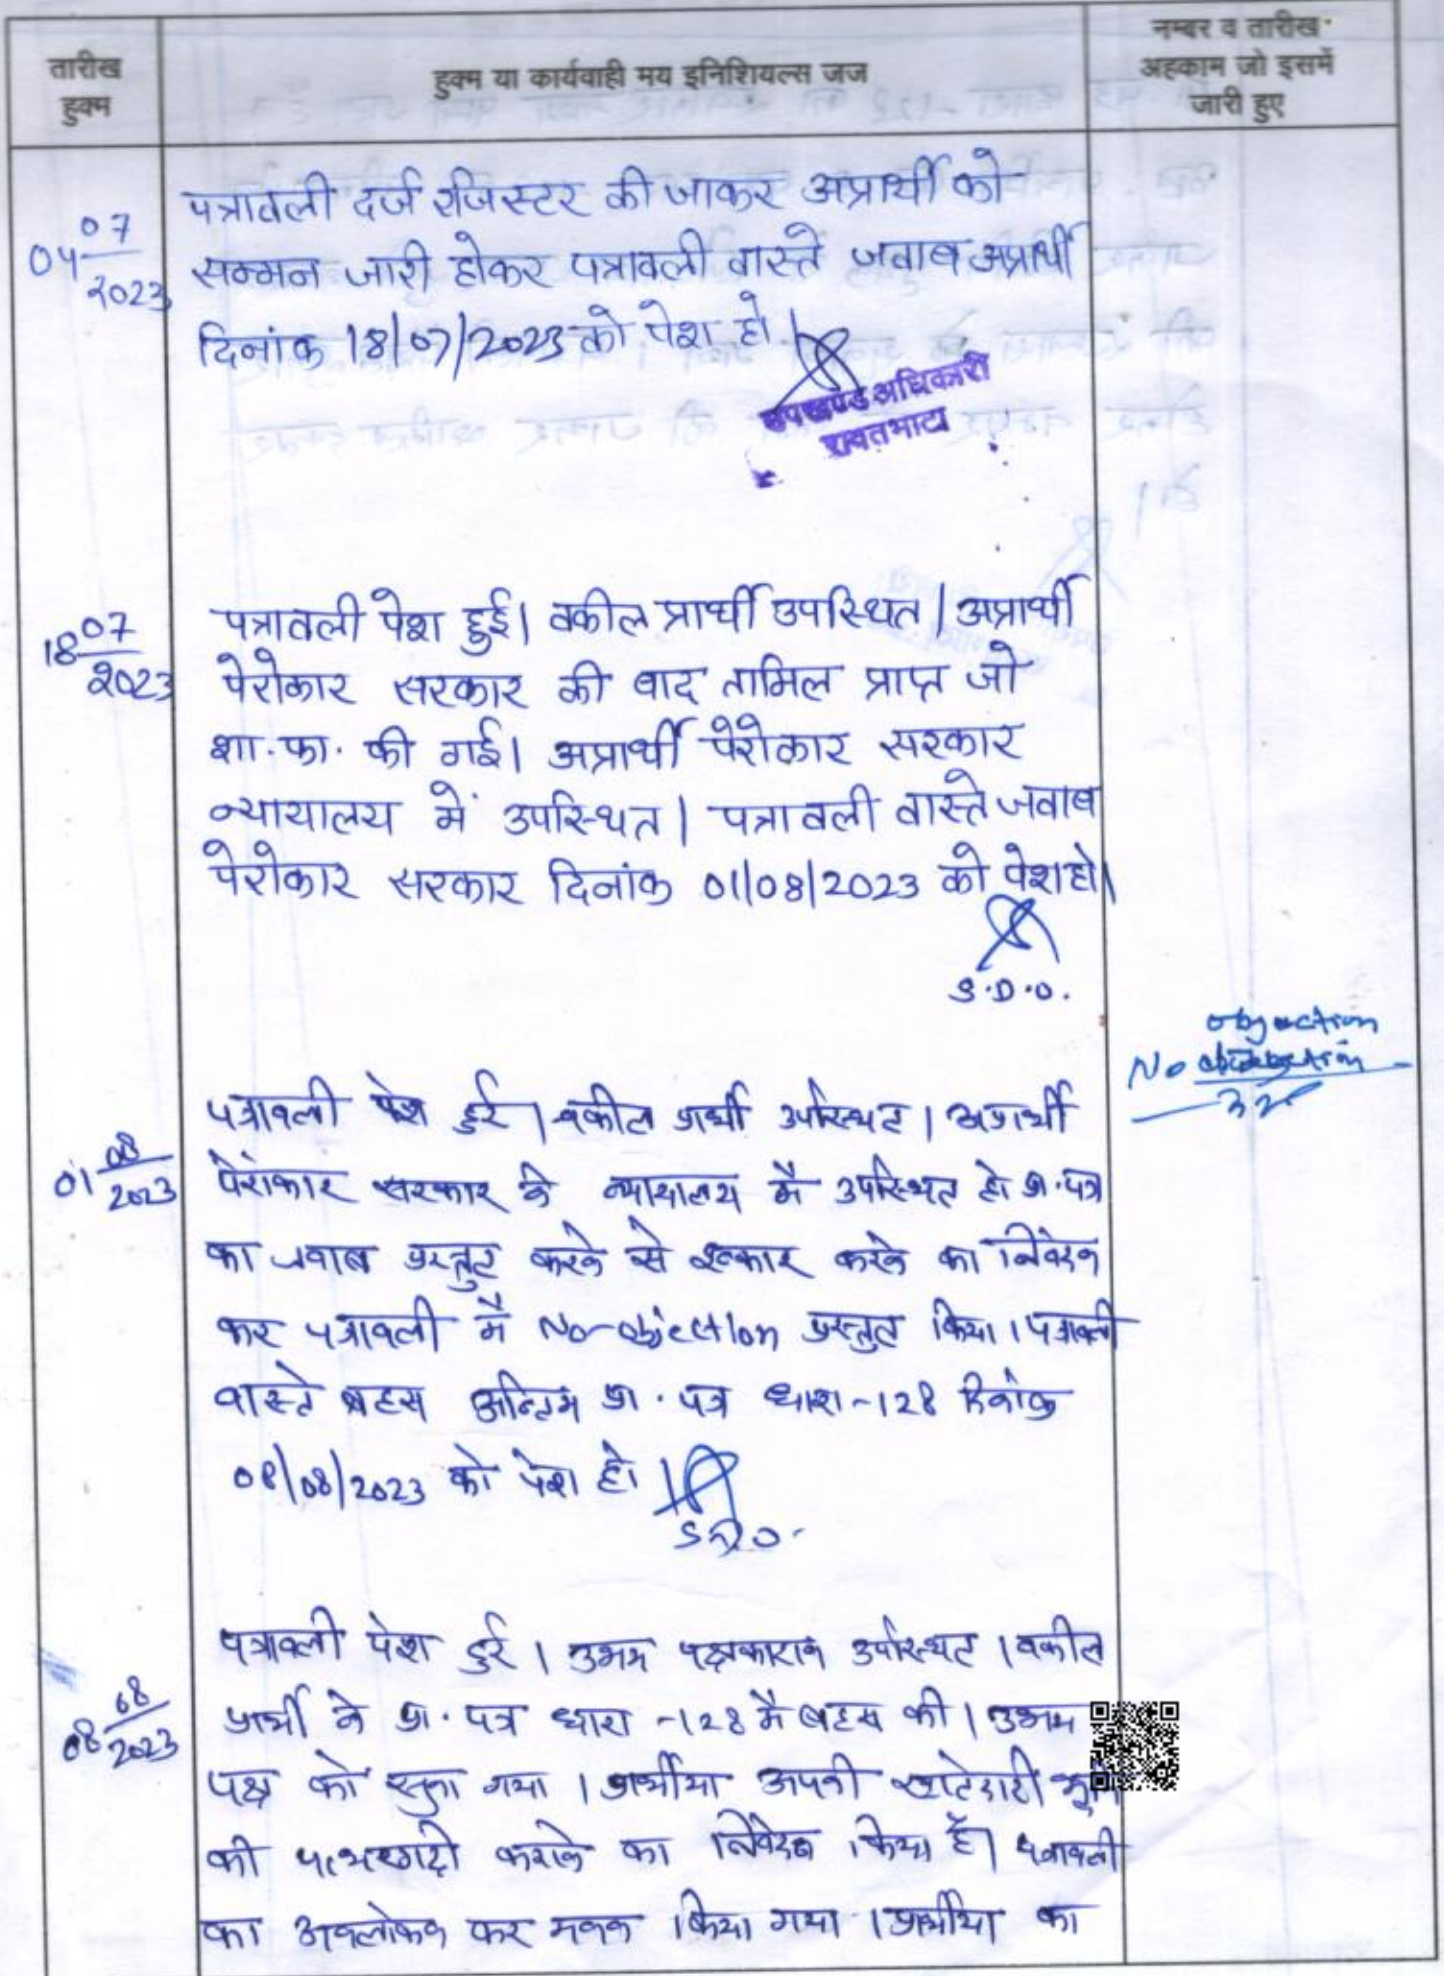 तारीख
हुक्म
हुक्म या कार्यवाही मय इनिशियल्स जज
नम्बर व तारीख
अहकाम जो इसमें
जारी हुए
04 07/2023
पत्रावली दर्ज रजिस्टर की जाकर अप्रार्थी को
सम्मन जारी होकर पत्रावली वास्ते जवाब अप्रार्थी
दिनांक 18/07/2023 को पेश हो।
उपखण्ड अधिकारी
रावतभाटा
18 07/2023
पत्रावली पेश हुई। वकील प्रार्थी उपस्थित। अप्रार्थी
पेरोकार सरकार की बाद तामिल प्राप्त जो
शा.फा. की गई। अप्रार्थी पेरोकार सरकार
न्यायालय में उपस्थित। पत्रावली वास्ते जवाब
पेरोकार सरकार दिनांक 01/08/2023 को पेश हो।
S.D.O.
objection
No
01 08/2023
पत्रावली पेश हुई। वकील प्रार्थी उपस्थित। अप्रार्थी
पेरोकार सरकार ने न्यायालय मै उपस्थित हो प्रा.पत्र
का जवाब प्रस्तुत करने से इन्कार करने का निवेदन
कर पत्रावली मै No-objection प्रस्तुत किया। पत्रावली
वास्ते बहस अन्तिम प्रा.पत्र धारा-128 दिनांक
08/08/2023 को पेश हो।
S.D.O.
08 08/2023
पत्रावली पेश हुई। उभय पक्षकारान उपस्थित। वकील
प्रार्थी ने प्रा.पत्र धारा-128 मै बहस की। उभय
पक्ष को सुना गया। प्रार्थीया अपनी खातेदारी भूमि
की पत्थरगढ़ी कराने का निवेदन किया है। पत्रावली
का अवलोकन कर मनन किया गया। प्रार्थीया का